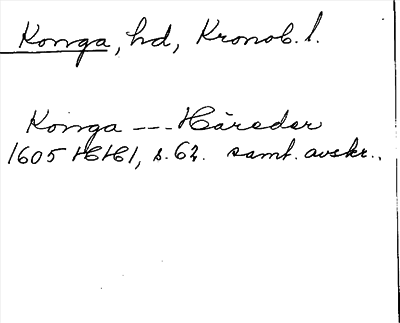 Konga, hd, Kronob. l.
Konga --- Häreder
1605 HH1, s. 62. samt. avskr.,